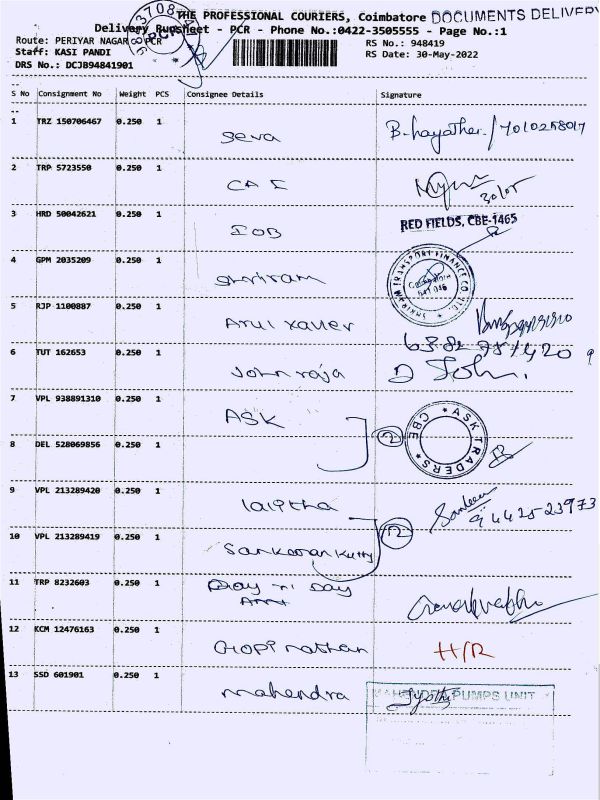 THE PROFESSIONAL COURIERS, Coimbatore DOCUMENTS DELIVERY
Delivery Runsheet - PCR - Phone No.:0422-3505555 - Page No.:1
Route: PERIYAR NAGAR - PCR
RS No.: 948419
Staff: KASI PANDI
RS Date: 30-May-2022
DRS No.: DCJB94841901
S No Consignment No Weight PCS Consignee Details Signature
1 TRZ 150706467 0.250 1 Seva B. hayather / 7010258017
2 TRP 5723550 0.250 1 CA I
3 HRD 50042621 0.250 1 IOB RED FIELDS, CBE-1465
4 GPM 2035209 0.250 1 Shriram SHRIRAM TRANSPORT FINANCE CO. LTD.
5 RJP 1100887 0.250 1 Arul xavier
6 TUT 162653 0.250 1 John raja D John.
7 VPL 938891310 0.250 1 ASK 2 ASK TRADERS CBE
8 DEL 528069856 0.250 1
9 VPL 213289420 0.250 1 lalitha 94425-23973
10 VPL 213289419 0.250 1 Sankaran Kutty 2
11 TRP 8232603 0.250 1 Day n Day
12 KCM 12476163 0.250 1 Gopi nathan H/R
13 SSD 601901 0.250 1 Mahendra Jyothi PUMPS UNIT